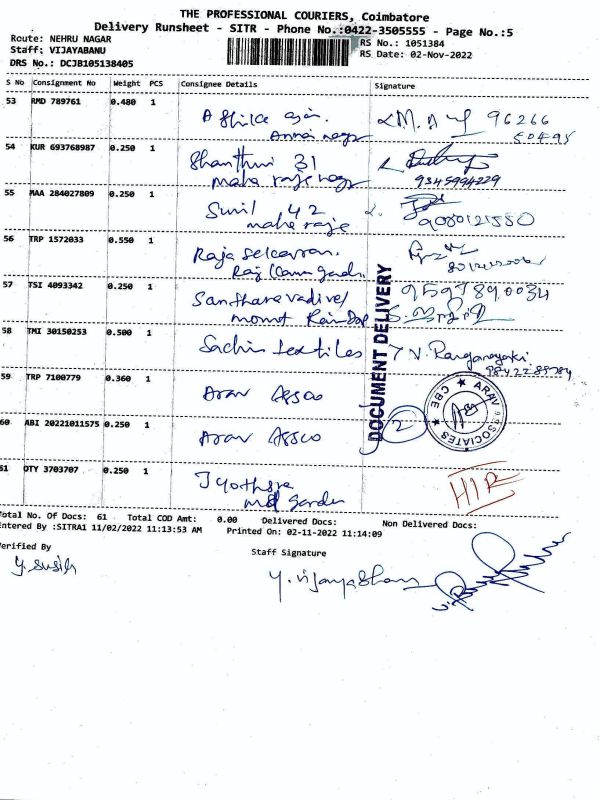 THE PROFESSIONAL COURIERS, Coimbatore
Delivery Runsheet - SITR - Phone No.:0422-3505555 - Page No.:5
Route: NEHRU NAGAR
RS No.: 1051384
Staff: VIJAYABANU
RS Date: 02-Nov-2022
DRS No.: DCJB105138405
S No Consignment No Weight PCS Consignee Details Signature
53 RMD 789761 0.480 1
96266
Annai nagar 50495
54 KUR 693768987 0.250 1 Shanthini 31
maha raja nagar 9345994229
55 MAA 284027809 0.250 1 Sunil 42
maha raja 9080121550
56 TRP 1572033 0.550 1 Raja Selvaran.
57 TSI 4093342 0.250 1 Santhana vadivel 9597890034
mount Raindrop
58 TMI 30150253 0.500 1 Sachin textiles T V. Ranganayaki
DOCUMENT DELIVERY
59 TRP 7100779 0.360 1 Arav Assco
ARAV ASSOCIATES ★ CBE ★
60 ABI 20221011575 0.250 1 Arav Assco 2
61 OTY 3703707 0.250 1 Jyothsra
garden
Total No. Of Docs: 61 Total COD Amt: 0.00 Delivered Docs: Non Delivered Docs:
Entered By :SITRA1 11/02/2022 11:13:53 AM Printed On: 02-11-2022 11:14:09
Verified By Staff Signature
Y. Susila
Y. Vijaya Bhanu